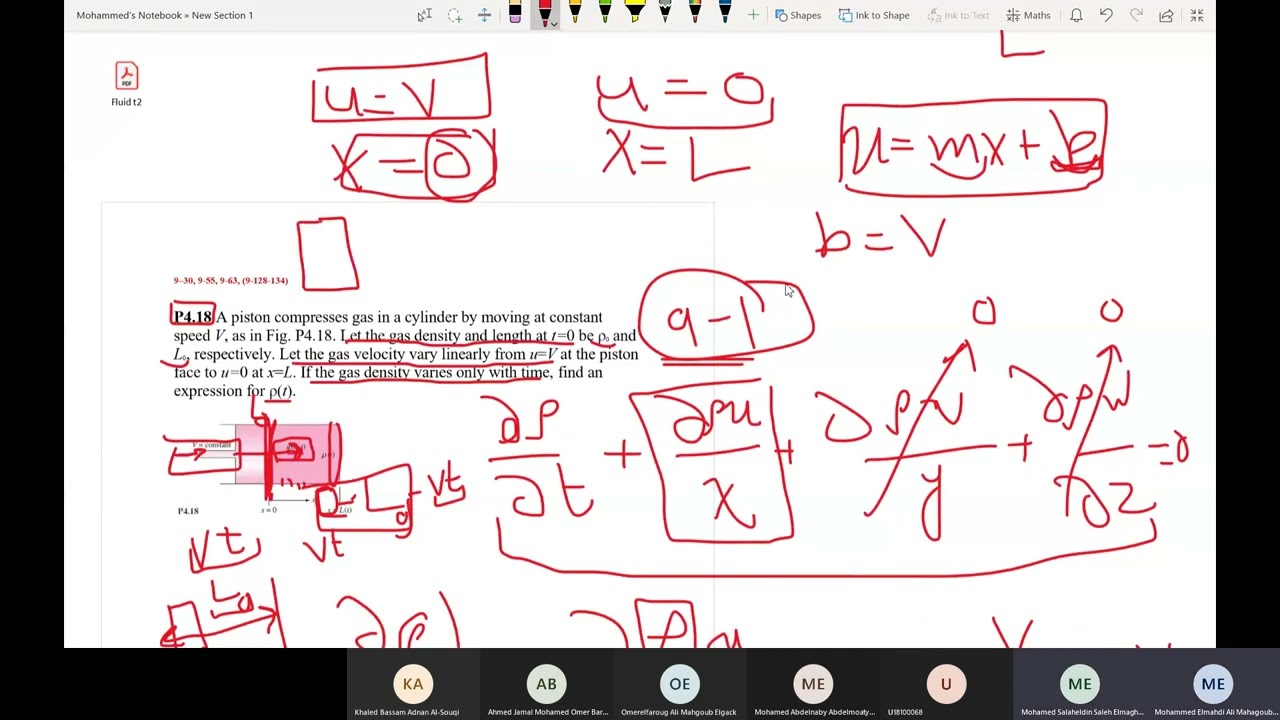 Mohammed's Notebook » New Section 1
Shapes
Ink to Shape
Ink to Text
Maths
PDF
Fluid t2
L
u = V
u = 0
x = 0
x = L
u = mx + b
b = V
9–30, 9-55, 9-63, (9-128-134)
9-1
P4.18 A piston compresses gas in a cylinder by moving at constant
speed V, as in Fig. P4.18. Let the gas density and length at t=0 be ρ₀ and
L₀, respectively. Let the gas velocity vary linearly from u=V at the piston
face to u=0 at x=L. If the gas density varies only with time, find an
expression for ρ(t).
0
0
∂ρ/∂t + ∂ρu/x + ∂ρv/y + ∂ρw/∂z = 0
V = constant
ρ(t)
L₀ - Vt
x = 0
x = L(t)
P4.18
Vt
Vt
L₀
∂ρ
∂ρu
KA
AB
OE
ME
U
ME
ME
Khaled Bassam Adnan Al-Souqi
Ahmed Jamal Mohamed Omer Bar...
Omerelfaroug Ali Mahgoub Elgack
Mohamed Abdelnaby Abdelmoaty...
U18100068
Mohamed Salaheldin Saleh Elmagh...
Mohammed Elmahdi Ali Mahagoub...